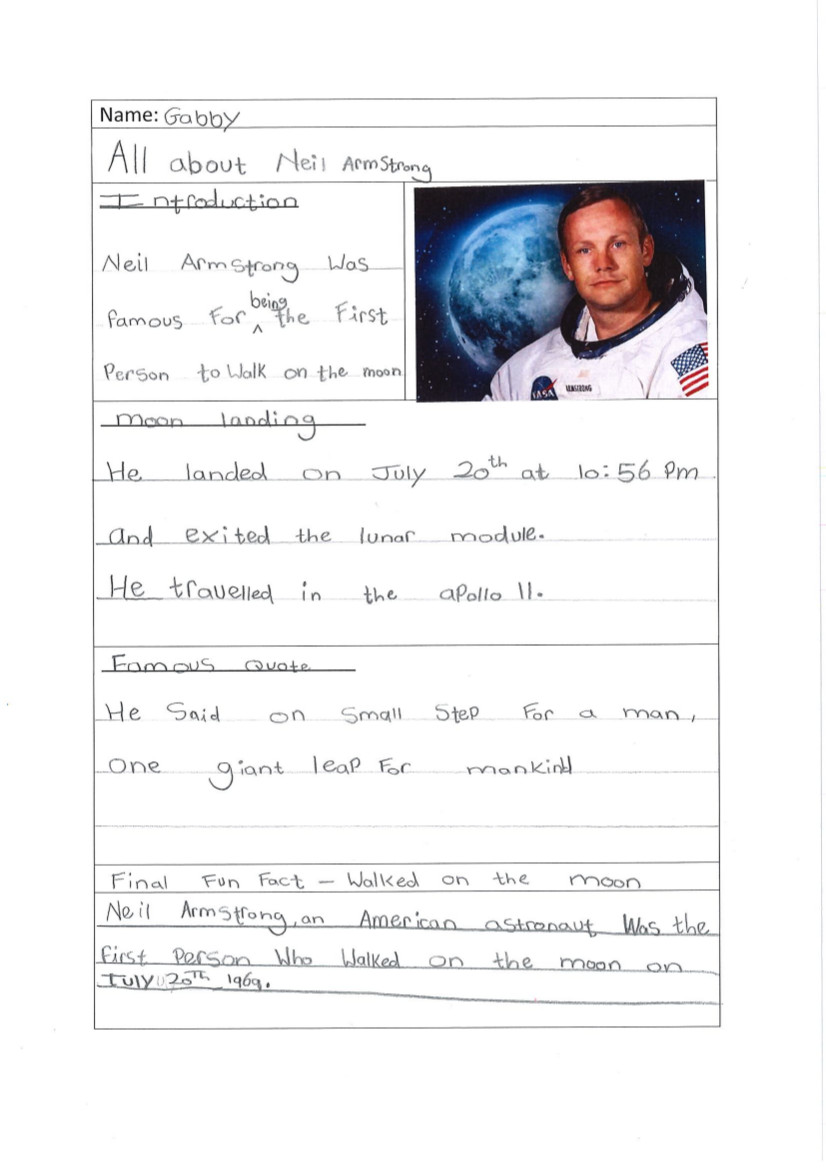 Name: Gabby
All about Neil Armstrong
Introduction
Neil Armstrong Was
famous For being the First
Person to Walk on the moon
NASA ARMSTRONG
moon landing
He landed on July 20th at 10:56 Pm
and exited the lunar module.
He travelled in the apollo 11.
Famous Quote
He Said on Small Step For a man,
one giant leap For mankind
Final Fun Fact – Walked on the moon
Neil Armstrong, an American astronaut Was the
first Person Who Walked on the moon on
July 20Th 1969.